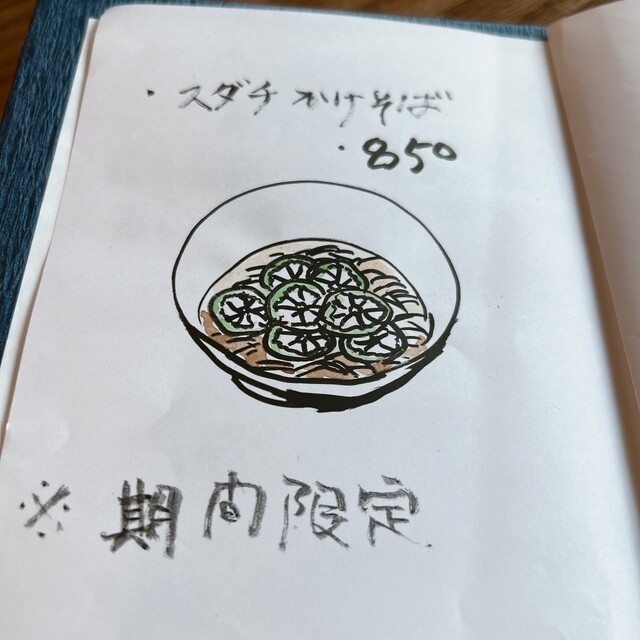 ・スダチかけそば
・850
※期間限定